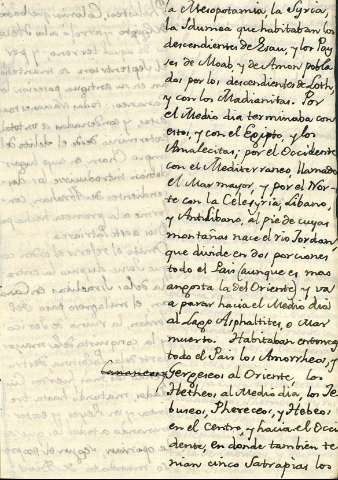 a Mesopotamia, la Syria,
la Idumea que habitaban los
descendientes de Esau, y los Pay
ses de Moab, y de Amon pobla
dos por los descendientes de Loth,
y con los Madianitas. Por
el Medio dia terminaba con
estos, y con el Egipto, y los
Amalecitas; por el Occidente
con el Mediterraneo, llamado
el Mar mayor, y por el Nor-
te con la Celesyria, Libano,
y Antilibano, al pie de cuyas
montañas nace el rio Jordan,
que divide en dos porciones
todo el Pais (aunque es mas
angosta la del Oriente) y va
a parar hacia el Medio dia
al Lago Asphaltites, o Mar
muerto. Habitaban entonces
todo el Pais los Amorrheos, y
Gergeseos al Oriente, los
Hetheos, al Medio dia, los Je
buseos, Phereceos, y Hebeos
en el Centro, y hacia el Occi
dente, en donde tambien te
nian cinco Satrapias los